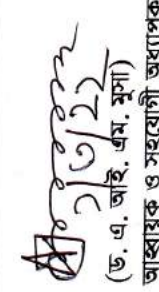 (ড. এ. আই. এম. মুসা)
আহ্বায়ক ও সহযোগী অধ্যাপক